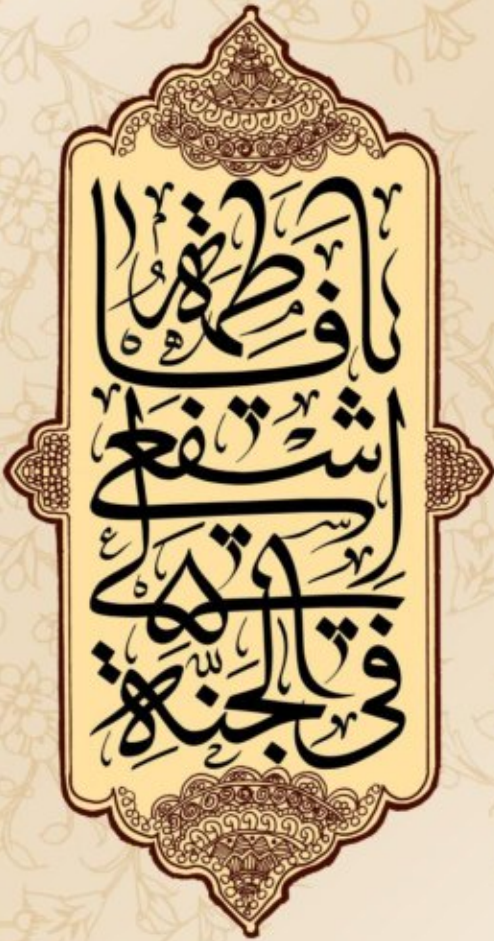 يا فاطمة
اشفعي لي
في الجنة